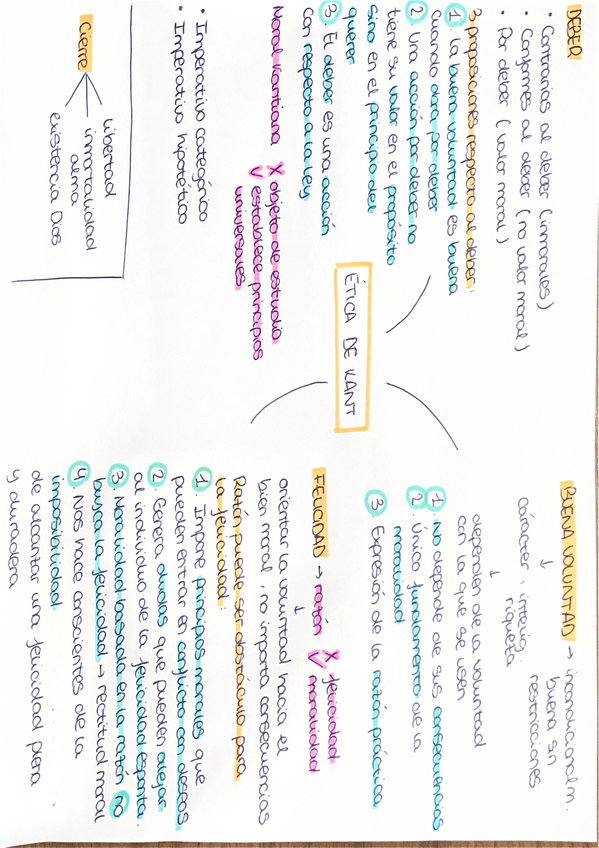 ÉTICA DE KANT
DEBER
• Contrarias al deber (inmorales)
• Conformes al deber (no valor moral)
• Por deber (valor moral)
3 proposiciones respecto al deber:
1. La buena voluntad es buena
cuando obra por deber
2. Una acción por deber no
tiene su valor en el propósito
sino en el principio del
querer
3. El deber es una acción
con respecto a la ley
Moral Kantiana X objeto de estudio
V establece principios
universales
• Imperativo categórico
• Imperativo hipotético
Cierre
libertad
inmortalidad
alma
existencia Dios
BUENA VOLUNTAD → incondicionalm.
buena sin
restricciones
↓
carácter, intelig.
riqueza
↓
dependen de la voluntad
con la que se usen
1. No depende de sus consecuencias
2. Único fundamento de la
moralidad
3. Expresión de la razón práctica
FELICIDAD → razón X felicidad
V moralidad
↓
orientar la voluntad hacia el
bien moral, no importa consecuencias
Razón puede ser obstáculo para
la felicidad:
1. Impone principios morales que
pueden entrar en conflicto con deseos
2. Genera dudas que pueden alejar
al individuo de la felicidad espontá.
3. Moralidad basada en la razón no
busca la felicidad → rectitud moral
4. Nos hace conscientes de la
imposibilidad
de alcanzar una felicidad plena
y duradera